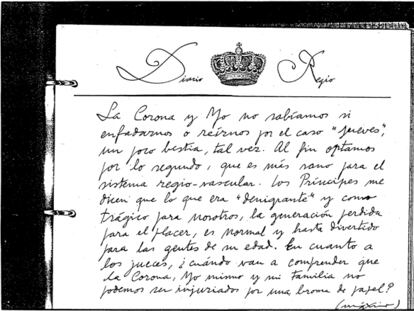 Diario Regio
La Corona y Yo no sabíamos si
enfadarnos o reírnos por el caso "Jueves",
un poco bestia, tal vez. Al fin optamos
por lo segundo, que es más sano para el
sistema regio-vascular. Los Príncipes me
dicen que lo que era "denigrante" y como
trágico para nosotros, la generación perdida
para el placer, es normal y hasta divertido
para las gentes de su edad. En cuanto a
los jueces, ¿cuándo van a comprender que
la Corona, Yo mismo y mi Familia no
podemos ser injuriados por una broma de papel?